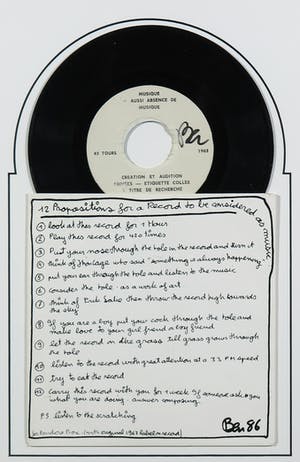 MUSIQUE
AUSSI ABSENCE DE
MUSIQUE
45 TOURS
Ben
1963
CREATION ET AUDITION
ETIQUETTE COLLEE
TITRE DE RECHERCHE
12 Propositions for a Record to be considered as music
1 look at this record for 1 Hour
2 Play this record for 420 times
3 Put your nose through the hole in the record and turn it
4 think of who said "something always happening"
5 put your ear through the hole and listen to the music
6 consider the hole as a work of art
7 think of Erik Satie then throw the record high towards
the sky
8 If you are a boy put your cock through the hole and
make love to your girl friend or boy friend
9 let the record in the grass till grass grows through
the hole
10 listen to the record with great attention at a 33 RPM speed
11 try to eat the record
12 Carry this record with you for 1 week If someone ask you
what you are doing answer composing.
PS listen to the scratching
Pandora Box (with original 1963 label on record)
Ben 86